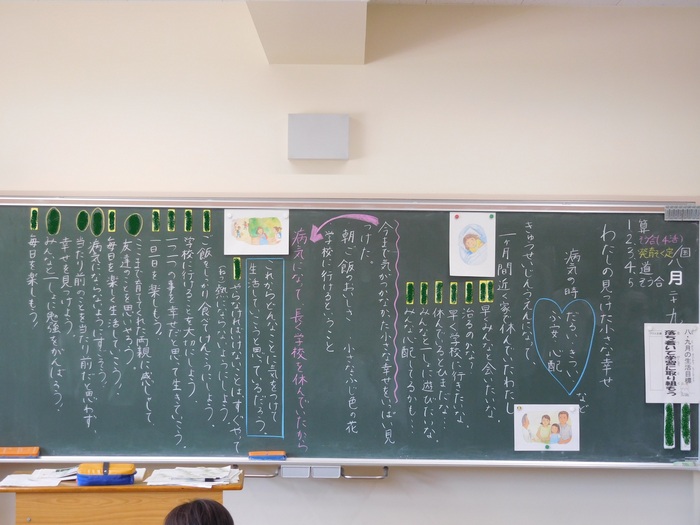 八月二十九
算
1
2
3
4
5
道
総合
八・九月の生活目標
落ち着いて学習に取り組もう
わたしの見つけた小さな幸せ
病気の時
だるい、きつい、
不安、心配
など
きゅうせいじんうえんになって
一ヶ月間近く学校を休んでいたわたし
早くみんなと会いたいな。
治るのかな?
早く学校に行きたいな。
休んでいるとひまだな…
みんなと一しょに遊びたいな。
みんな心配してるかも…
今まで気がつかなかった小さな幸せをいっぱい見
つけた。
朝ご飯のおいしさ
小さなふじ色の花
学校に行けるということ
病気になって、長く学校を休んでいたから
これからどんなことに気をつけて
生活していこうと思っているだろう。
やらなければいけないことは、すぐやって
ご飯をしっかり食べて、けんこうにしよう。
学校に行けることを大切にしよう。
一つ一つの事を幸せだと思って生きていこう。
一日一日を楽しもう。
ここまで育ててくれた両親に感しゃして、
友達のことを思いやろう。
毎日を楽しく生活していこう。
病気にならないようにすごそう。
当たり前のことを当たり前だと思わず、
幸せを見つけよう。
みんなと一しょに勉強をがんばろう。
毎日を楽しもう。